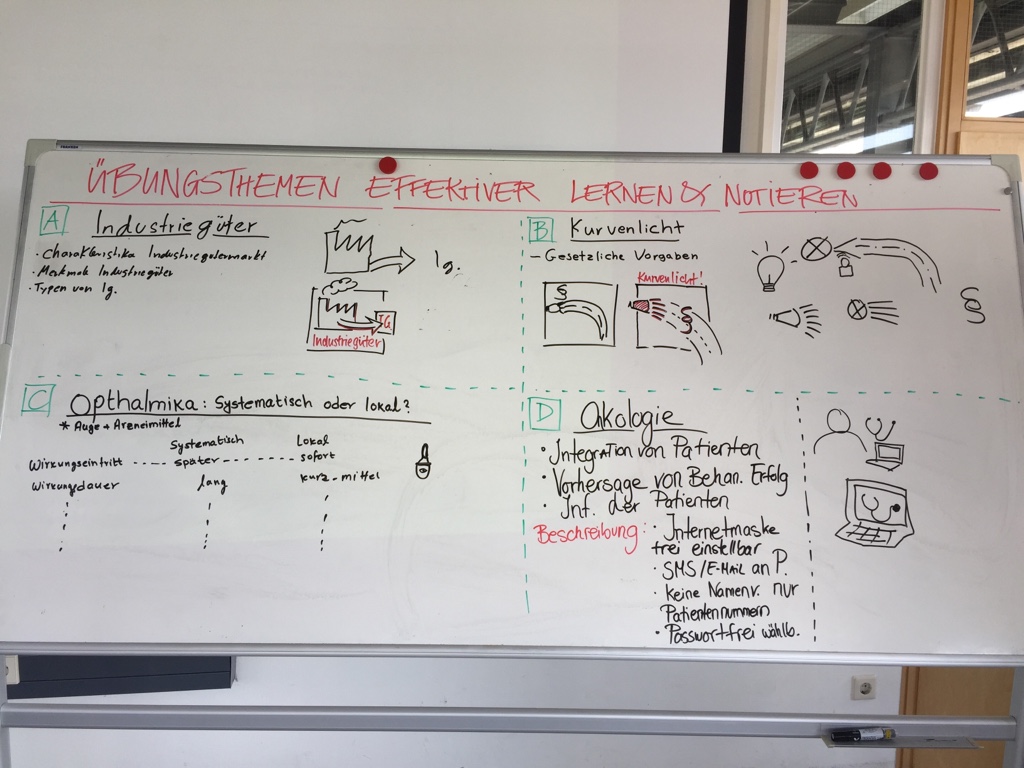 ÜBUNGSTHEMEN EFFEKTIVER LERNEN & NOTIEREN
A Industriegüter
· Charakteristika Industriegütermarkt
· Merkmale Industriegüter
· Typen von Ig.
Ig.
IG
Industriegüter
B Kurvenlicht
– Gesetzliche Vorgaben
§
Kurvenlicht!
§
§
C Opthalmika: Systematisch oder lokal?
* Auge + Areneimittel
Systematisch Lokal
Wirkungseintritt später sofort
Wirkungsdauer lang kurz - mittel
D Akologie
· Integration von Patienten
· Vorhersage von Behan. Erfolg
· Int. der Patienten
Beschreibung: · Internetmaske
frei einstellbar
· SMS/E-MAIL an P.
· Keine Namenv. nur
Patientennummern
· Passwort frei wählb.